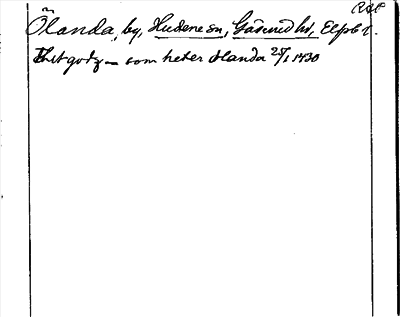 Ölanda, by, Hudene sn, Gäsened hd, Elfsb l.
Thet godz – som heter Olanda 25/1 1430